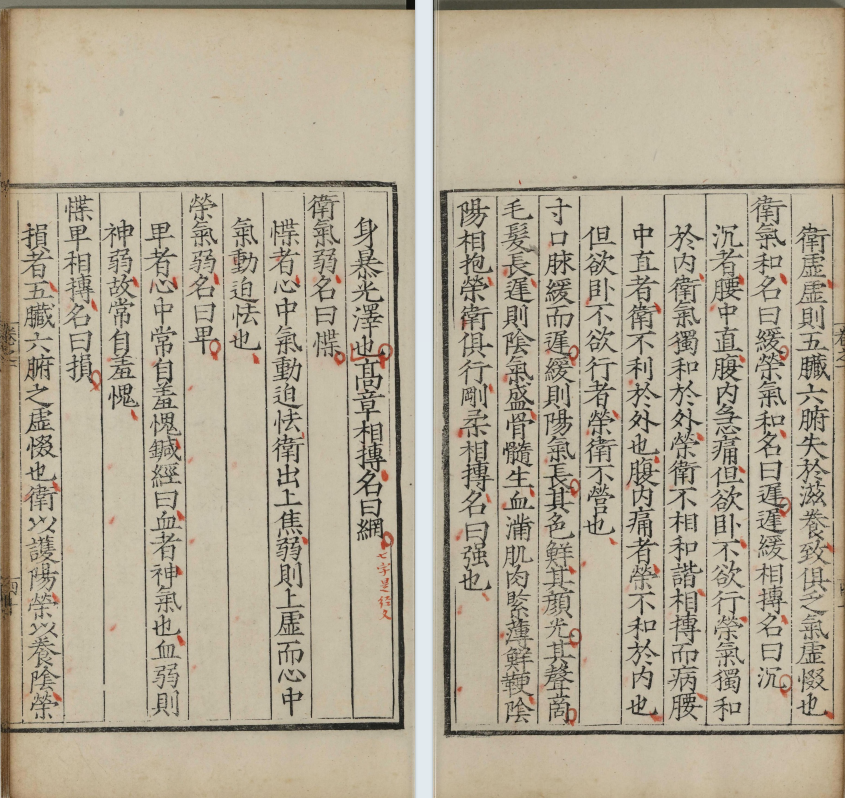 身暴光澤也高章相搏名曰綱
七字是經文
衛氣弱名曰惵
惵者心中氣動迫怯衛出上焦弱則上虛而心中
氣動迫怯也
榮氣弱名曰卑
卑者心中常自羞愧鍼經曰血者神氣也血弱則
神弱故常自羞愧
惵卑相搏名曰損
損者五臟六腑之虛惙也衛以護陽榮以養陰榮
衛虛虛則五臟六腑失於滋養致俱乏氣虛惙也
衛氣和名曰緩榮氣和名曰遲遲緩相搏名曰沉
沉者腰中直腹內急痛但欲卧不欲行榮氣獨和
於內衛氣獨和於外榮衛不相和諧相搏而病腰
中直者衛不利於外也腹內痛者榮不和於內也
但欲卧不欲行者榮衛不營也
寸口脉緩而遲緩則陽氣長其色鮮其顏光其聲商
毛髮長遲則陰氣盛骨髓生血滿肌肉緊薄鮮鞕陰
陽相抱榮衛俱行剛柔相搏名曰强也